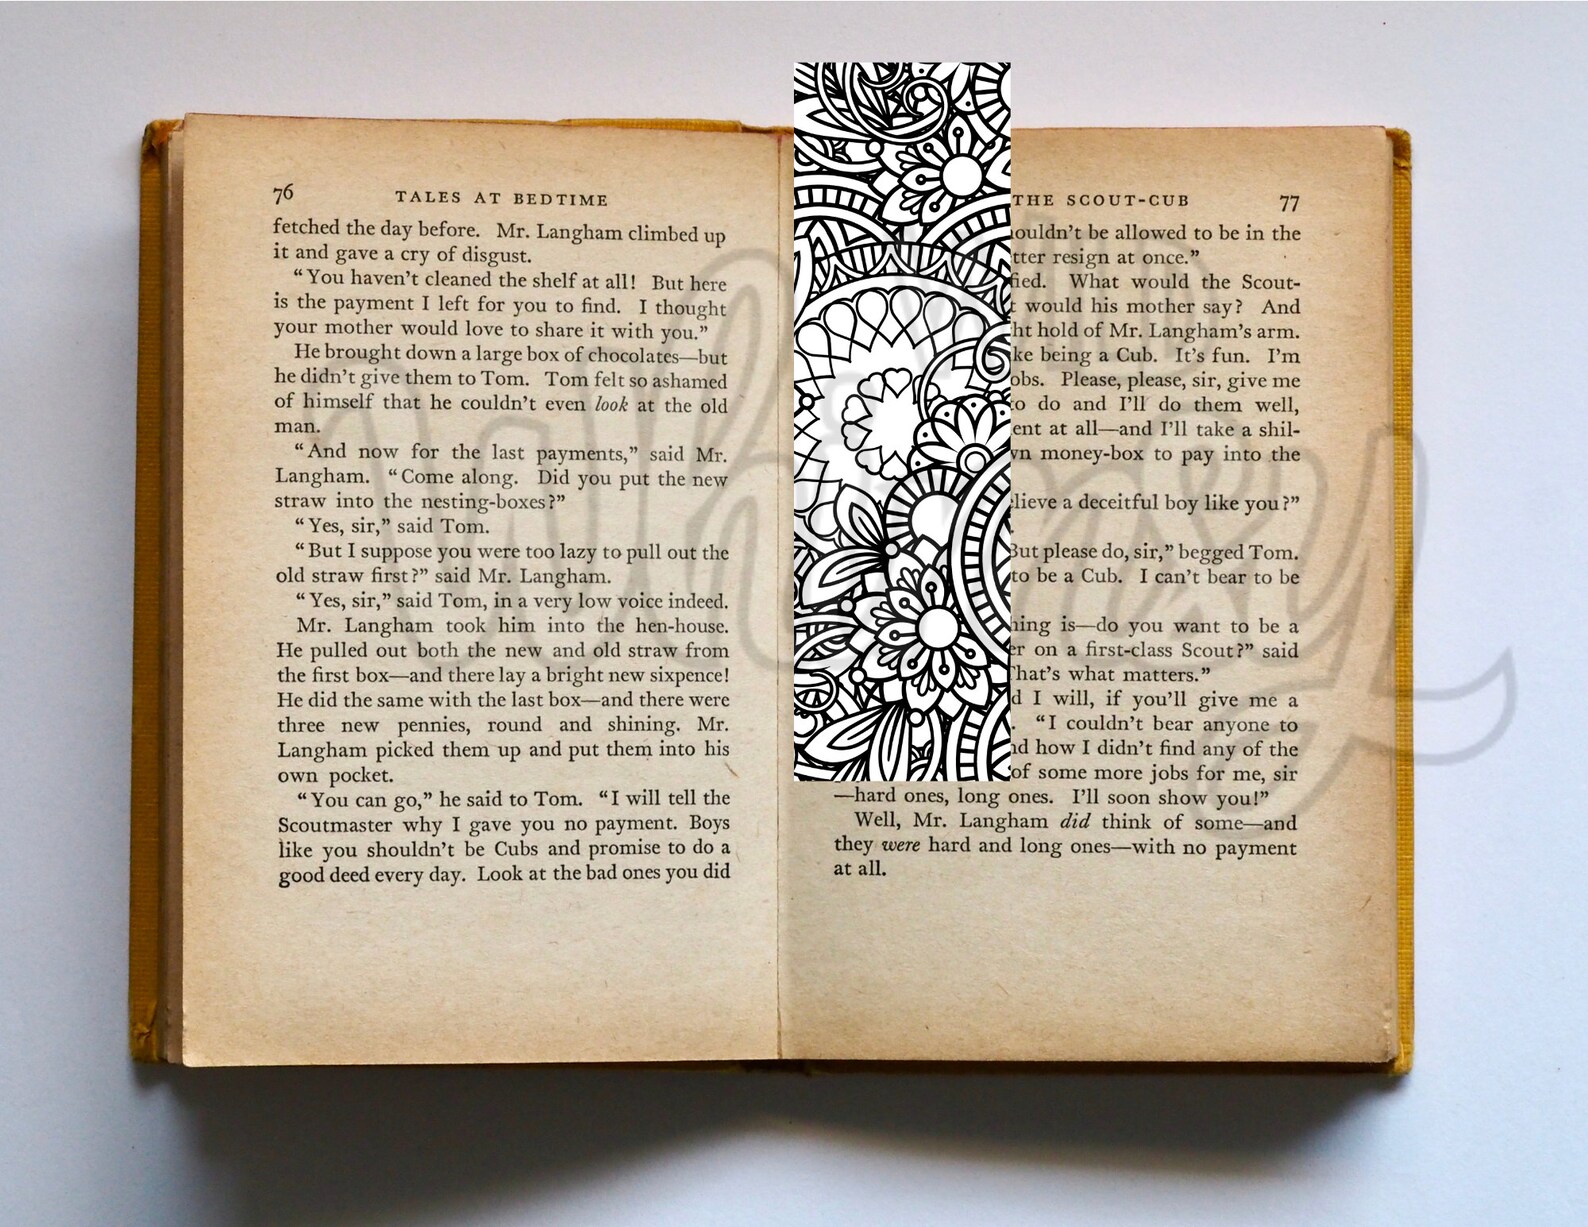 76 TALES AT BEDTIME
fetched the day before. Mr. Langham climbed up
it and gave a cry of disgust.
“You haven’t cleaned the shelf at all! But here
is the payment I left for you to find. I thought
your mother would love to share it with you.”
He brought down a large box of chocolates—but
he didn’t give them to Tom. Tom felt so ashamed
of himself that he couldn’t even look at the old
man.
“And now for the last payments,” said Mr.
Langham. “Come along. Did you put the new
straw into the nesting-boxes?”
“Yes, sir,” said Tom.
“But I suppose you were too lazy to pull out the
old straw first?” said Mr. Langham.
“Yes, sir,” said Tom, in a very low voice indeed.
Mr. Langham took him into the hen-house.
He pulled out both the new and old straw from
the first box—and there lay a bright new sixpence!
He did the same with the last box—and there were
three new pennies, round and shining. Mr.
Langham picked them up and put them into his
own pocket.
“You can go,” he said to Tom. “I will tell the
Scoutmaster why I gave you no payment. Boys
like you shouldn’t be Cubs and promise to do a
good deed every day. Look at the bad ones you did
THE SCOUT-CUB 77
be allowed to be in the
resign at once.”
What would the Scout-
would his mother say? And
hold of Mr. Langham’s arm.
being a Cub. It’s fun. I’m
Please, please, sir, give me
do and I’ll do them well,
at all—and I’ll take a shil-
money-box to pay into the
a deceitful boy like you?”
But please do, sir,” begged Tom.
to be a Cub. I can’t bear to be
is—do you want to be a
on a first-class Scout?” said
That’s what matters.”
I will, if you’ll give me a
“I couldn’t bear anyone to
how I didn’t find any of the
of some more jobs for me, sir
—hard ones, long ones. I’ll soon show you!”
Well, Mr. Langham did think of some—and
they were hard and long ones—with no payment
at all.